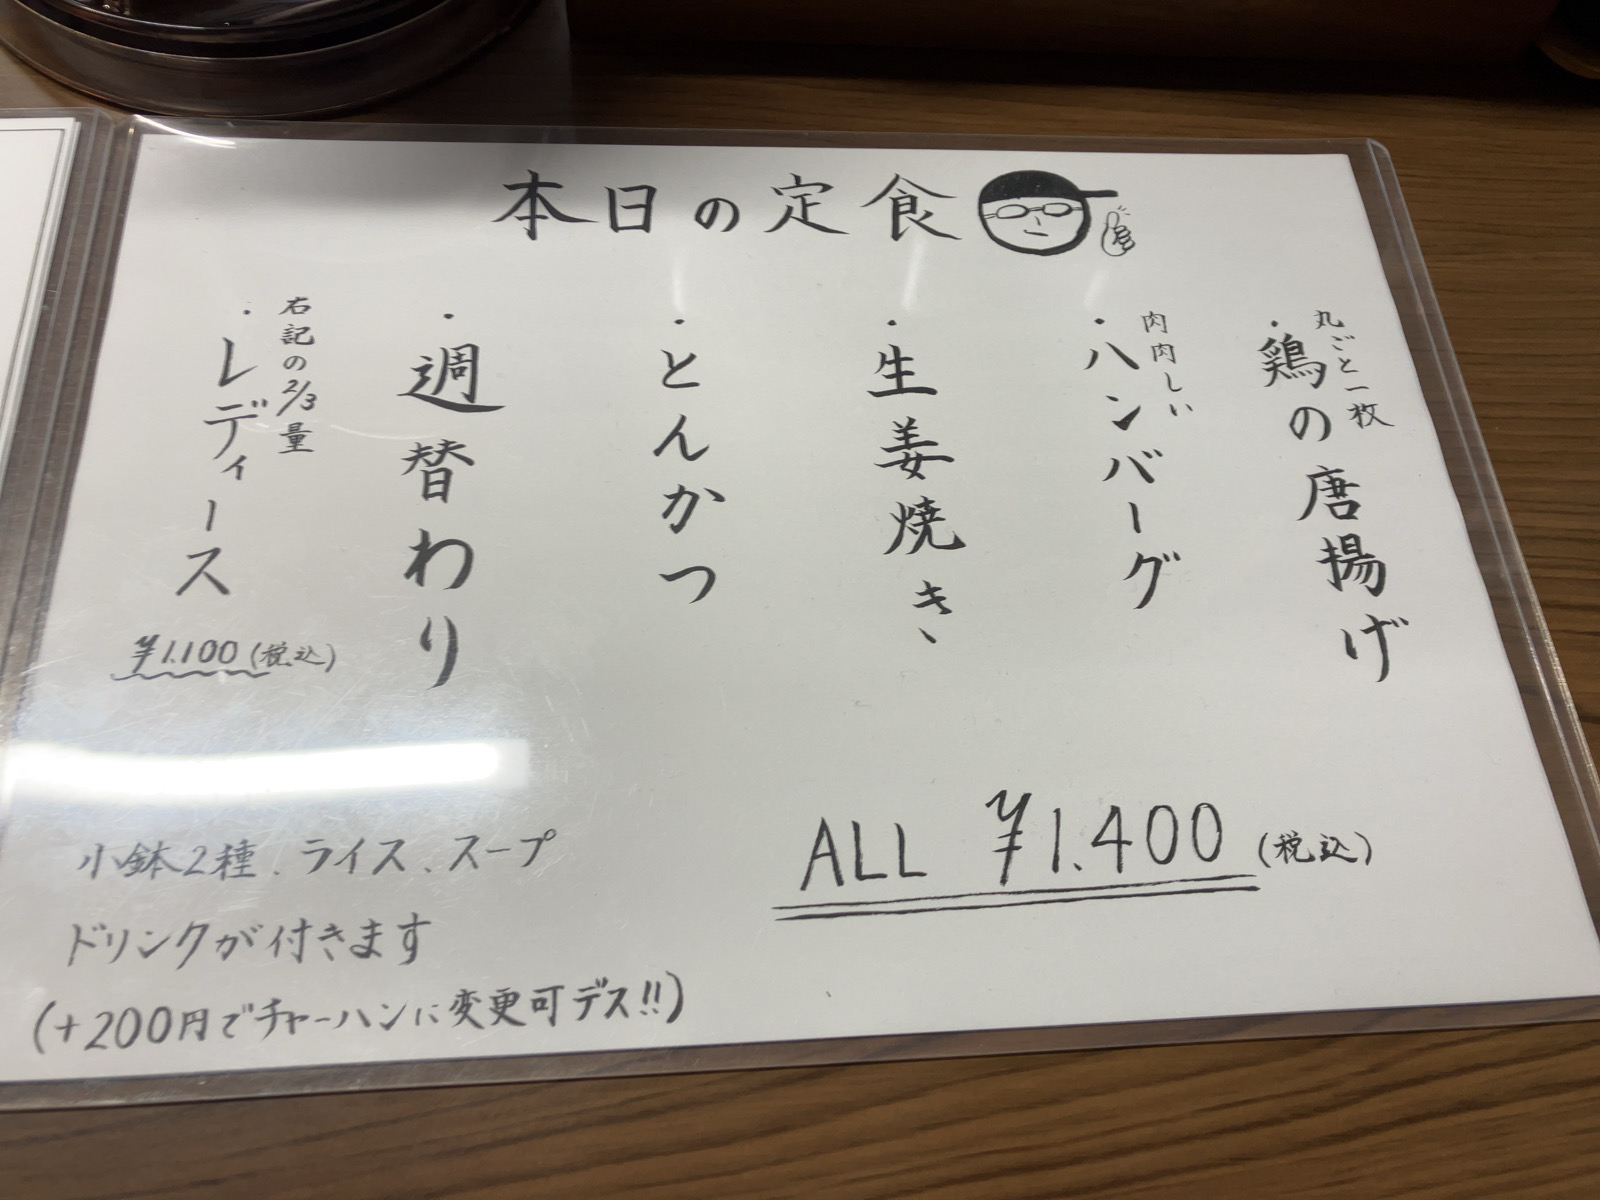 本日の定食
丸ごと一枚
・鶏の唐揚げ
肉肉しい
・ハンバーグ
・生姜焼き
・とんかつ
・週替わり
右記の2/3量
・レディース
¥1.100(税込)
ALL ¥1.400(税込)
小鉢2種、ライス、スープ
ドリンクが付きます
(+200円でチャーハンに変更可デス!!)